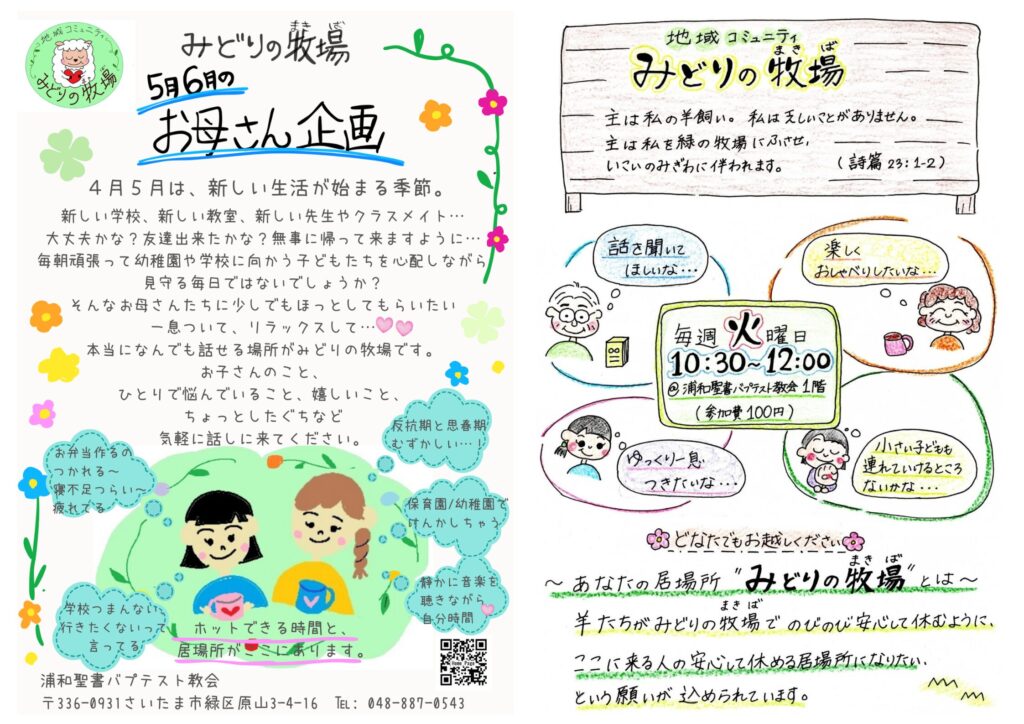 地域コミュニティ
みどりの牧場
みどりの牧場
まきば
5月6月の
お母さん企画
4月5月は、新しい生活が始まる季節。
新しい学校、新しい教室、新しい先生やクラスメイト…
大丈夫かな？友達出来たかな？無事に帰って来ますように…
毎朝頑張って幼稚園や学校に向かう子どもたちを心配しながら
見守る毎日ではないでしょうか？
そんなお母さんたちに少しでもほっとしてもらいたい
一息ついて、リラックスして…
本当になんでも話せる場所がみどりの牧場です。
お子さんのこと、
ひとりで悩んでいること、嬉しいこと、
ちょっとしたぐちなど
気軽に話しに来てください。
反抗期と思春期
むずかしい…！
お弁当作るの
つかれる〜
寝不足つらい〜
疲れてる
保育園/幼稚園で
けんかしちゃう
静かに音楽を
聴きながら
自分時間
学校つまんない
行きたくないって
言ってる
ホットできる時間と、
居場所がここにあります。
Home Page
浦和聖書バプテスト教会
〒336-0931さいたま市緑区原山3-4-16 TEL: 048-887-0543
地域コミュニティ
まきば
みどりの牧場
主は私の羊飼い。私は乏しいことがありません。
主は私を緑の牧場にふさせ,
いこいのみぎわに伴われます。 (詩篇23:1-2)
話を聞いて
ほしいな…
楽しく
おしゃべりしたいな…
毎週火曜日
10:30~12:00
@浦和聖書バプテスト教会1階
(参加費100円)
ゆっくり一息
つきたいな…
小さい子どもも
連れていけるところ
ないかな…
どなたでもお越しください
まきば
〜あなたの居場所"みどりの牧場"とは〜
まきば
羊たちがみどりの牧場でのびのび安心して休むように、
ここに来る人の安心して休める居場所になりたい、
という願いが込められています。